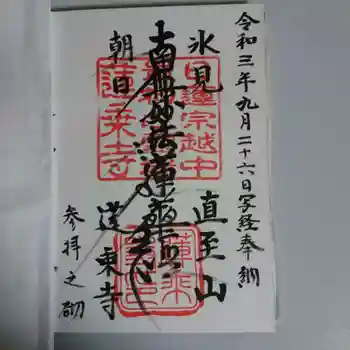 令和三年九月二十六日写経奉納
氷見 直至山
南無妙法蓮華経
朝日 蓮乗寺
参拝之砌
日蓮宗越中
蓮乗寺